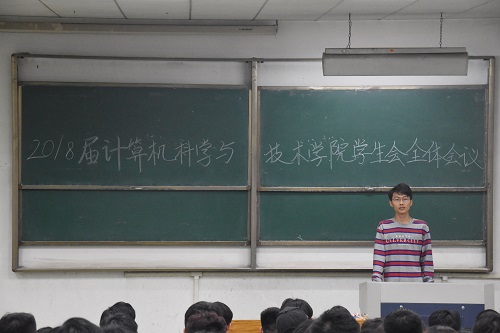 2018届计算机科学与技术学院学生会全体会议